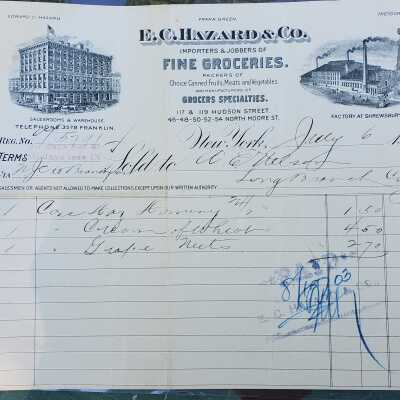 EDWARD C. HAZARD
FRANK GREEN
E. C. HAZARD & CO.
IMPORTERS & JOBBERS OF
FINE GROCERIES.
PACKERS OF
Choice Canned Fruits, Meats and Vegetables.
AND MANUFACTURERS OF
GROCERS SPECIALTIES.
117 & 119 HUDSON STREET.
46-48-50-52-54 NORTH MOORE ST.
SALESROOMS & WAREHOUSE.
TELEPHONE 3579 FRANKLIN.
FACTORY AT SHREWSBURY
REG. NO.
New York, July 6
TERMS
Sold to
Long Branch
SALESMEN OR AGENTS NOT ALLOWED TO MAKE COLLECTIONS EXCEPT UPON OUR WRITTEN AUTHORITY.
1 Case Hominy 1 50
1 " Cream of Wheat 4 50
1 " Grape Nuts 2 70
PAID
03